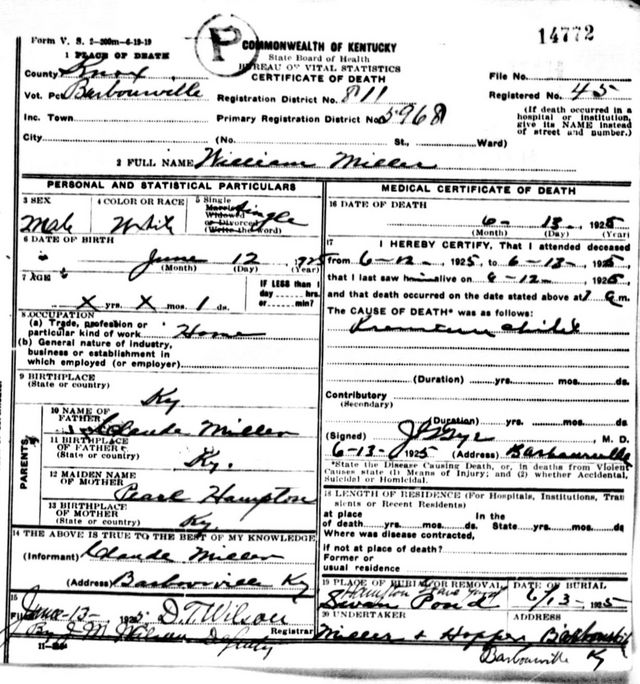 14772
Form V. S. 2-200m-6-19-19
P
COMMONWEALTH OF KENTUCKY
State Board of Health
BUREAU OF VITAL STATISTICS
CERTIFICATE OF DEATH
1 PLACE OF DEATH
County Knox
Vot. Pct Barbourville
Inc. Town
City
Registration District No. 811
Primary Registration District No. 5968
(No. St., Ward)
File No.
Registered No. 45
(If death occurred in a
hospital or institution,
give its NAME instead
of street and number.)
2 FULL NAME William Miller
PERSONAL AND STATISTICAL PARTICULARS
3 SEX
Male
4 COLOR OR RACE
White
5 Single
Married
Widowed
or Divorced
(Write the word)
Single
6 DATE OF BIRTH
June 12 1925
(Month) (Day) (Year)
7 AGE
X yrs. X mos. 1 ds.
IF LESS than 1
day hrs.
or min?
8 OCCUPATION
(a) Trade, profession or
particular kind of work Home
(b) General nature of industry,
business or establishment in
which employed (or employer)
9 BIRTHPLACE
(State or country)
Ky
PARENTS
10 NAME OF
FATHER
Claude Miller
11 BIRTHPLACE
OF FATHER
(State or country)
Ky.
12 MAIDEN NAME
OF MOTHER
Pearl Hampton
13 BIRTHPLACE
OF MOTHER
(State or country)
Ky.
14 THE ABOVE IS TRUE TO THE BEST OF MY KNOWLEDGE
(Informant) Claude Miller
(Address) Barbourville Ky
15
Filed June-13- 1925 D.T. Wilson
Registrar
By J M Wilson Deputy
MEDICAL CERTIFICATE OF DEATH
16 DATE OF DEATH
6- 13- 1925
(Month) (Day) (Year)
17 I HEREBY CERTIFY, That I attended deceased
from 6-12- 1925, to 6-13- 1925,
that I last saw him alive on 6-12- 1925,
and that death occurred on the date stated above at 7 a.m.
The CAUSE OF DEATH* was as follows:
Premature child
(Duration) yrs. mos. ds.
Contributory
(Secondary)
(Duration) yrs. mos. ds.
(Signed) M. D.
6-13- 1925 (Address) Barbourville
*State the Disease Causing Death, or, in deaths from Violent
Causes state (1) Means of Injury; and (2) whether Accidental,
Suicidal or Homicidal.
18 LENGTH OF RESIDENCE (For Hospitals, Institutions, Tran
sients or Recent Residents)
at place In the
of death yrs. mos. ds. State yrs. mos. ds.
Where was disease contracted,
if not at place of death?
Former or
usual residence
19 PLACE OF BURIAL OR REMOVAL
Hampton
Swan Pond
DATE OF BURIAL
6/13- 1925
20 UNDERTAKER
Miller & Hopper
ADDRESS
Barbourville
Barbourville Ky